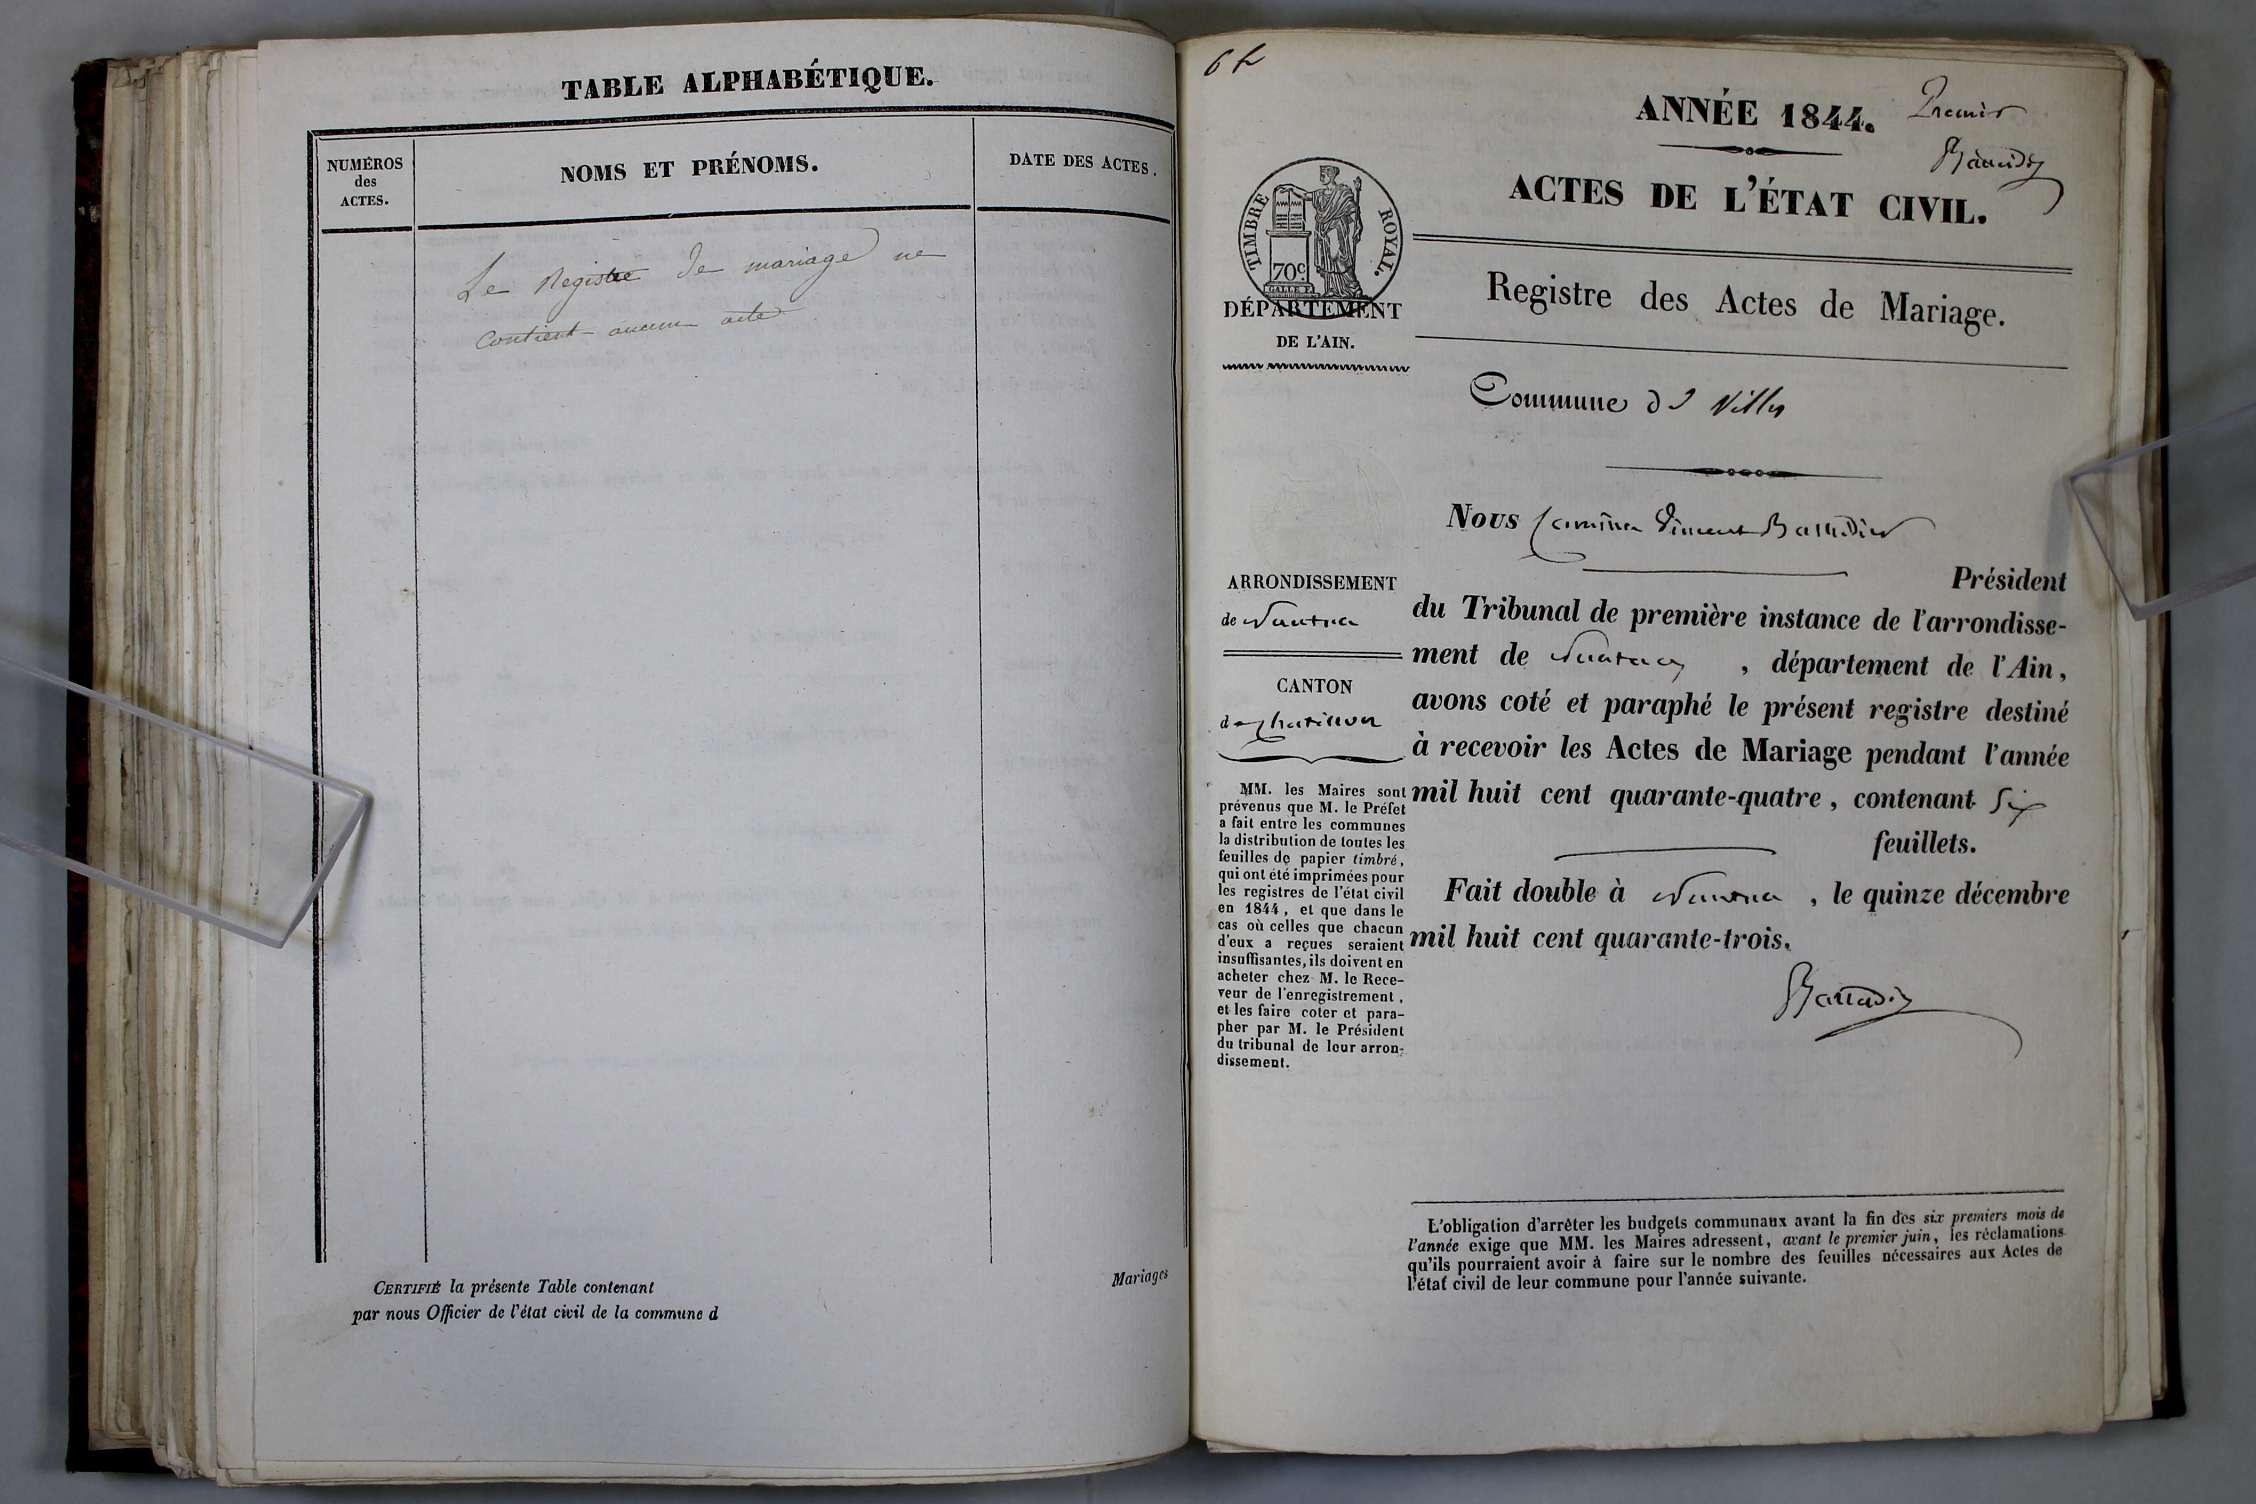 TABLE ALPHABÉTIQUE.
NUMÉROS
des
ACTES.
NOMS ET PRÉNOMS.
DATE DES ACTES.
Le Registre de mariage ne
Contient aucun acte
CERTIFIÉ la présente Table contenant
Mariages
par nous Officier de l'état civil de la commune d
6 f.
ANNÉE 1844.
Premier
ACTES DE L'ÉTAT CIVIL.
TIMBRE ROYAL.
70 c.
GALLE F.
DÉPARTEMENT
DE L'AIN.
Registre des Actes de Mariage.
Commune de Villes
Nous Vincent
Président
ARRONDISSEMENT
de Nantua
CANTON
de Chatillon
MM. les Maires sont
prévenus que M. le Préfet
a fait entre les communes
la distribution de toutes les
feuilles de papier timbré,
qui ont été imprimées pour
les registres de l'état civil
en 1844, et que dans le
cas où celles que chacun
d'eux a reçues seraient
insuffisantes, ils doivent en
acheter chez M. le Rece-
veur de l'enregistrement,
et les faire coter et para-
pher par M. le Président
du tribunal de leur arron-
dissement.
du Tribunal de première instance de l'arrondisse-
ment de Nantua, département de l'Ain,
avons coté et paraphé le présent registre destiné
à recevoir les Actes de Mariage pendant l'année
mil huit cent quarante-quatre, contenant Six
feuillets.
Fait double à Nantua, le quinze décembre
mil huit cent quarante-trois.
L'obligation d'arrêter les budgets communaux avant la fin des six premiers mois de
l'année exige que MM. les Maires adressent, avant le premier juin, les réclamations
qu'ils pourraient avoir à faire sur le nombre des feuilles nécessaires aux Actes de
l'état civil de leur commune pour l'année suivante.